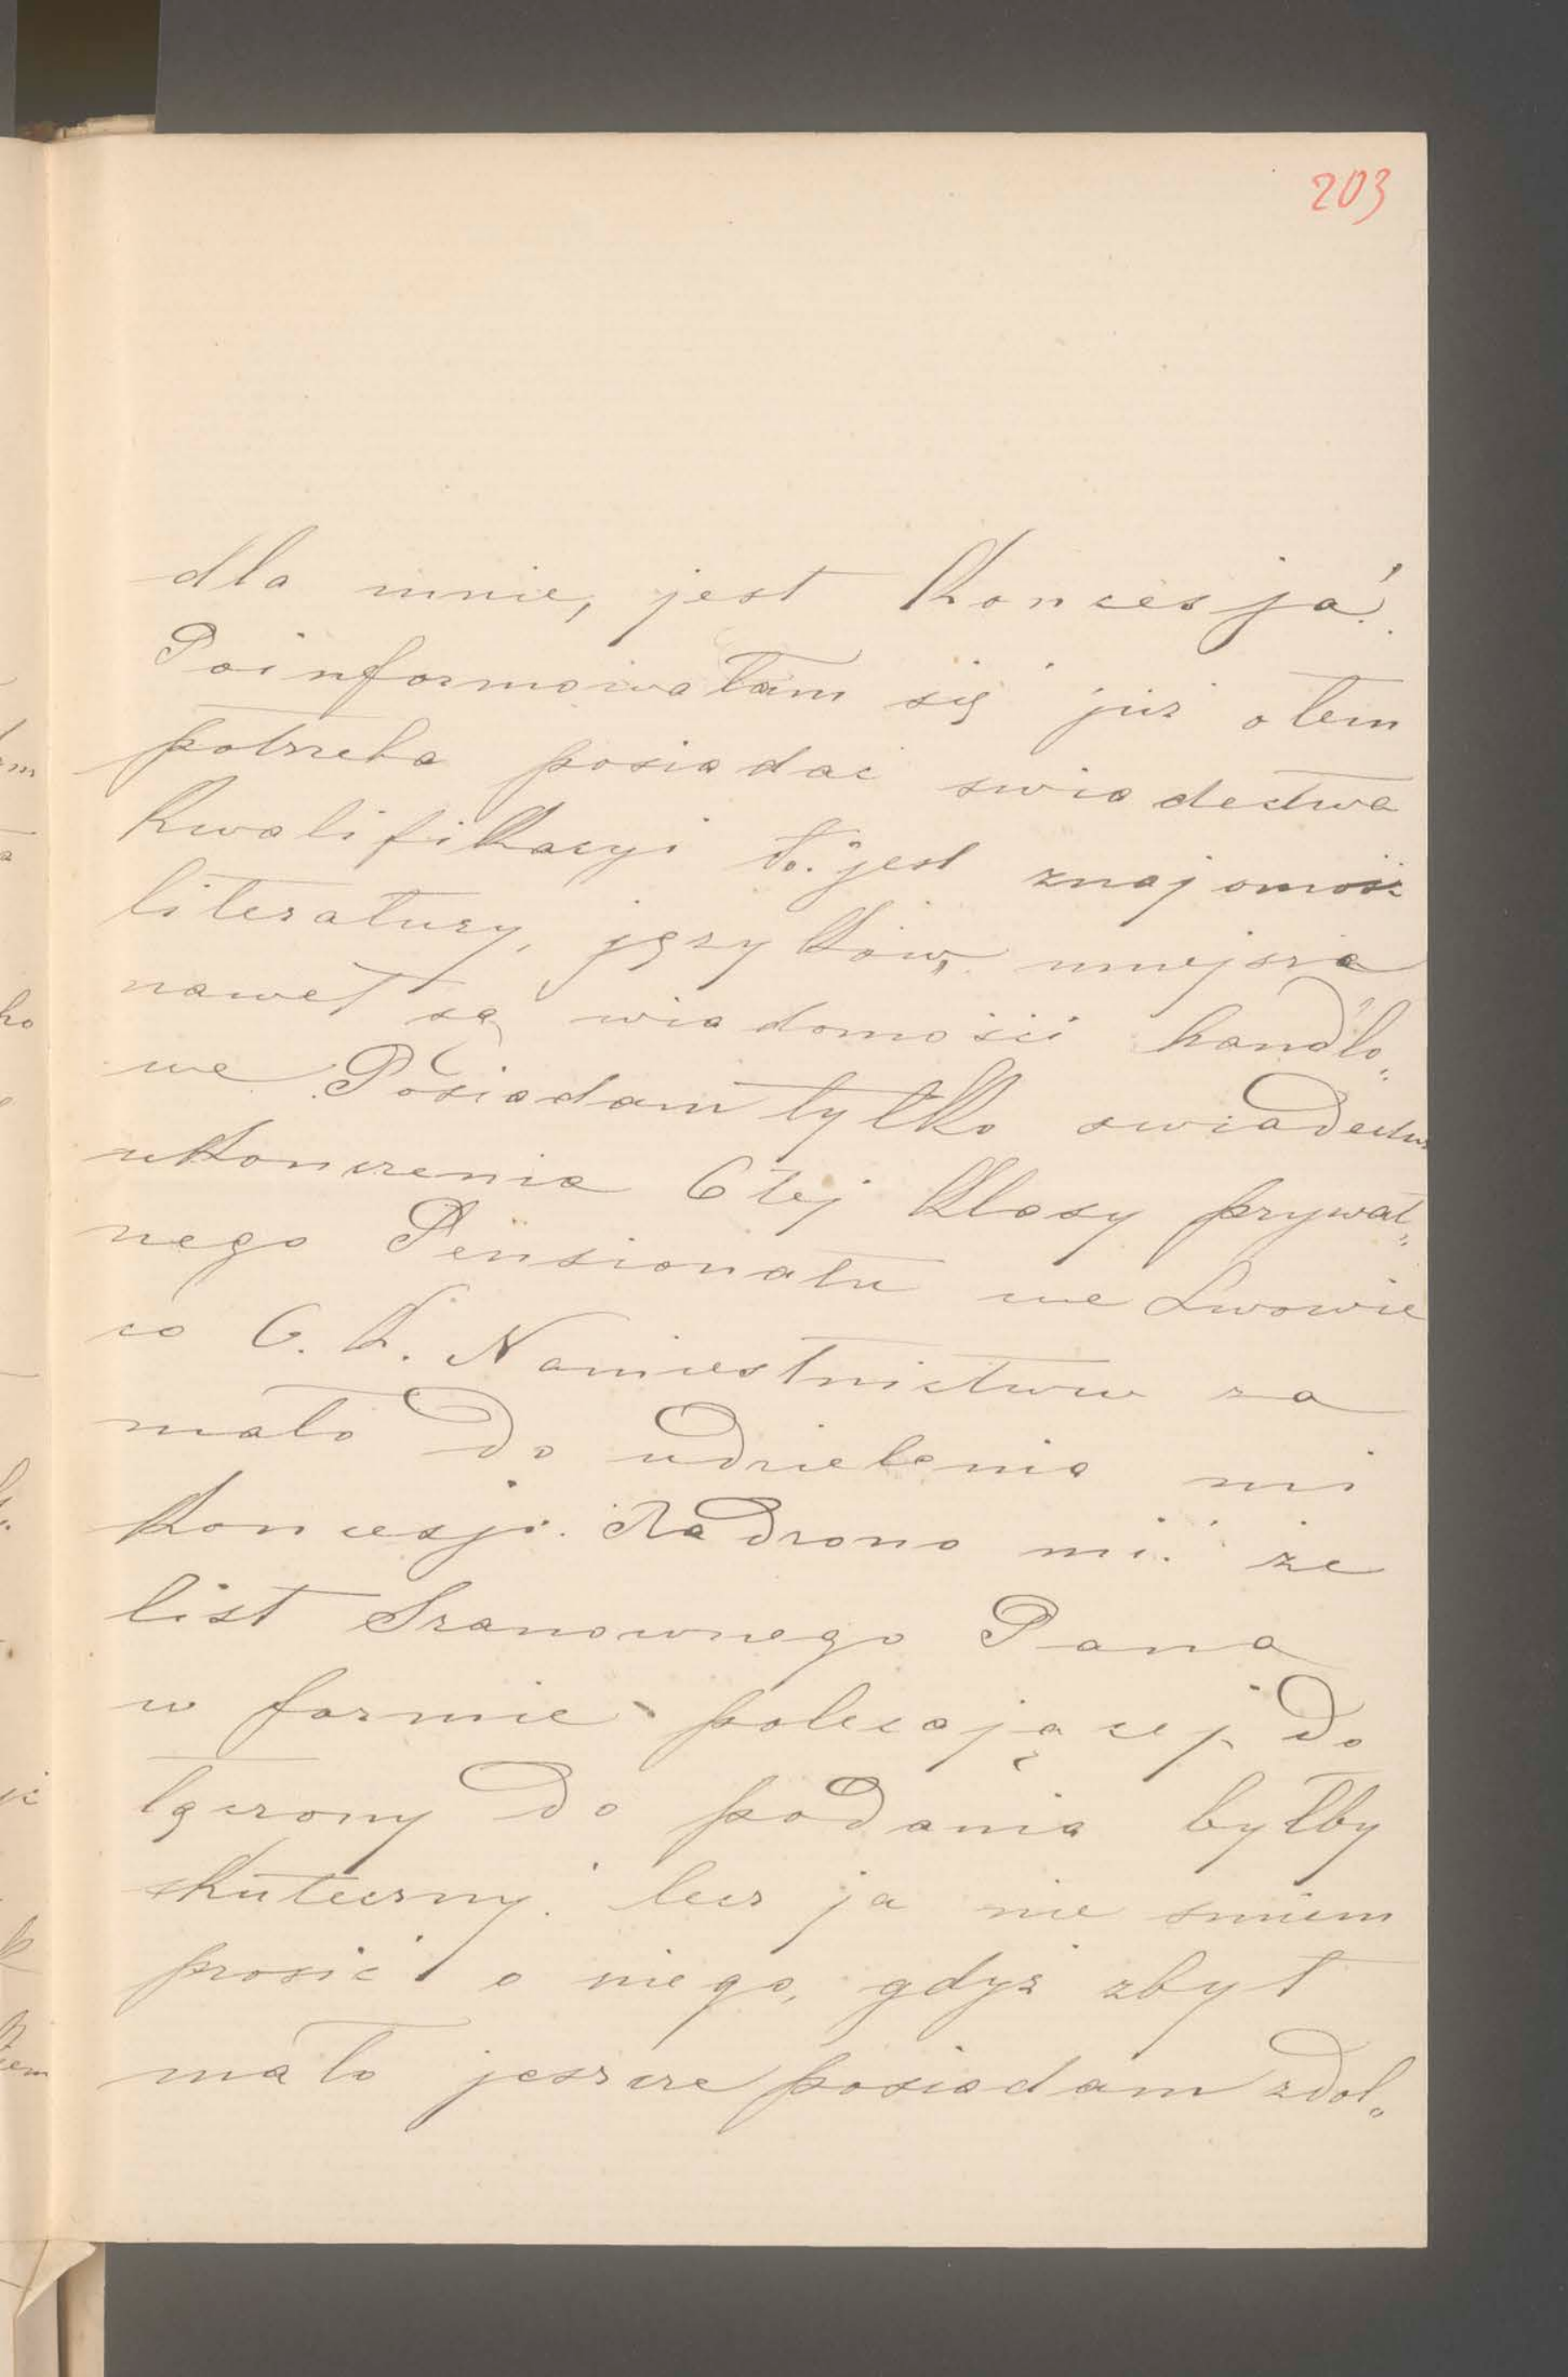 203
dla mnie, jest Koncesja!
Poinformowałam się już o tem
potrzeba posiadać swiadectwa
Kwalifikacyi to. jest znajomość
literatury, języków, mniejsza
nawet są wiadomości handlo„
we Posiadam tylko swiadectwo
ukonczenia 6tej Klasy prywat„
nego Pensionatu we Lwowie
co C. K. Namiestnictwu za
mało do udzielenia mi
Koncesji. Radzono mi że
list Szanownego Pana
w formie polecającej do
łączony do podania byłby
skuteczny. lecz ja nie smiem
prosić o niego, gdyż zbyt
mało jeszcze posiadam zdol„